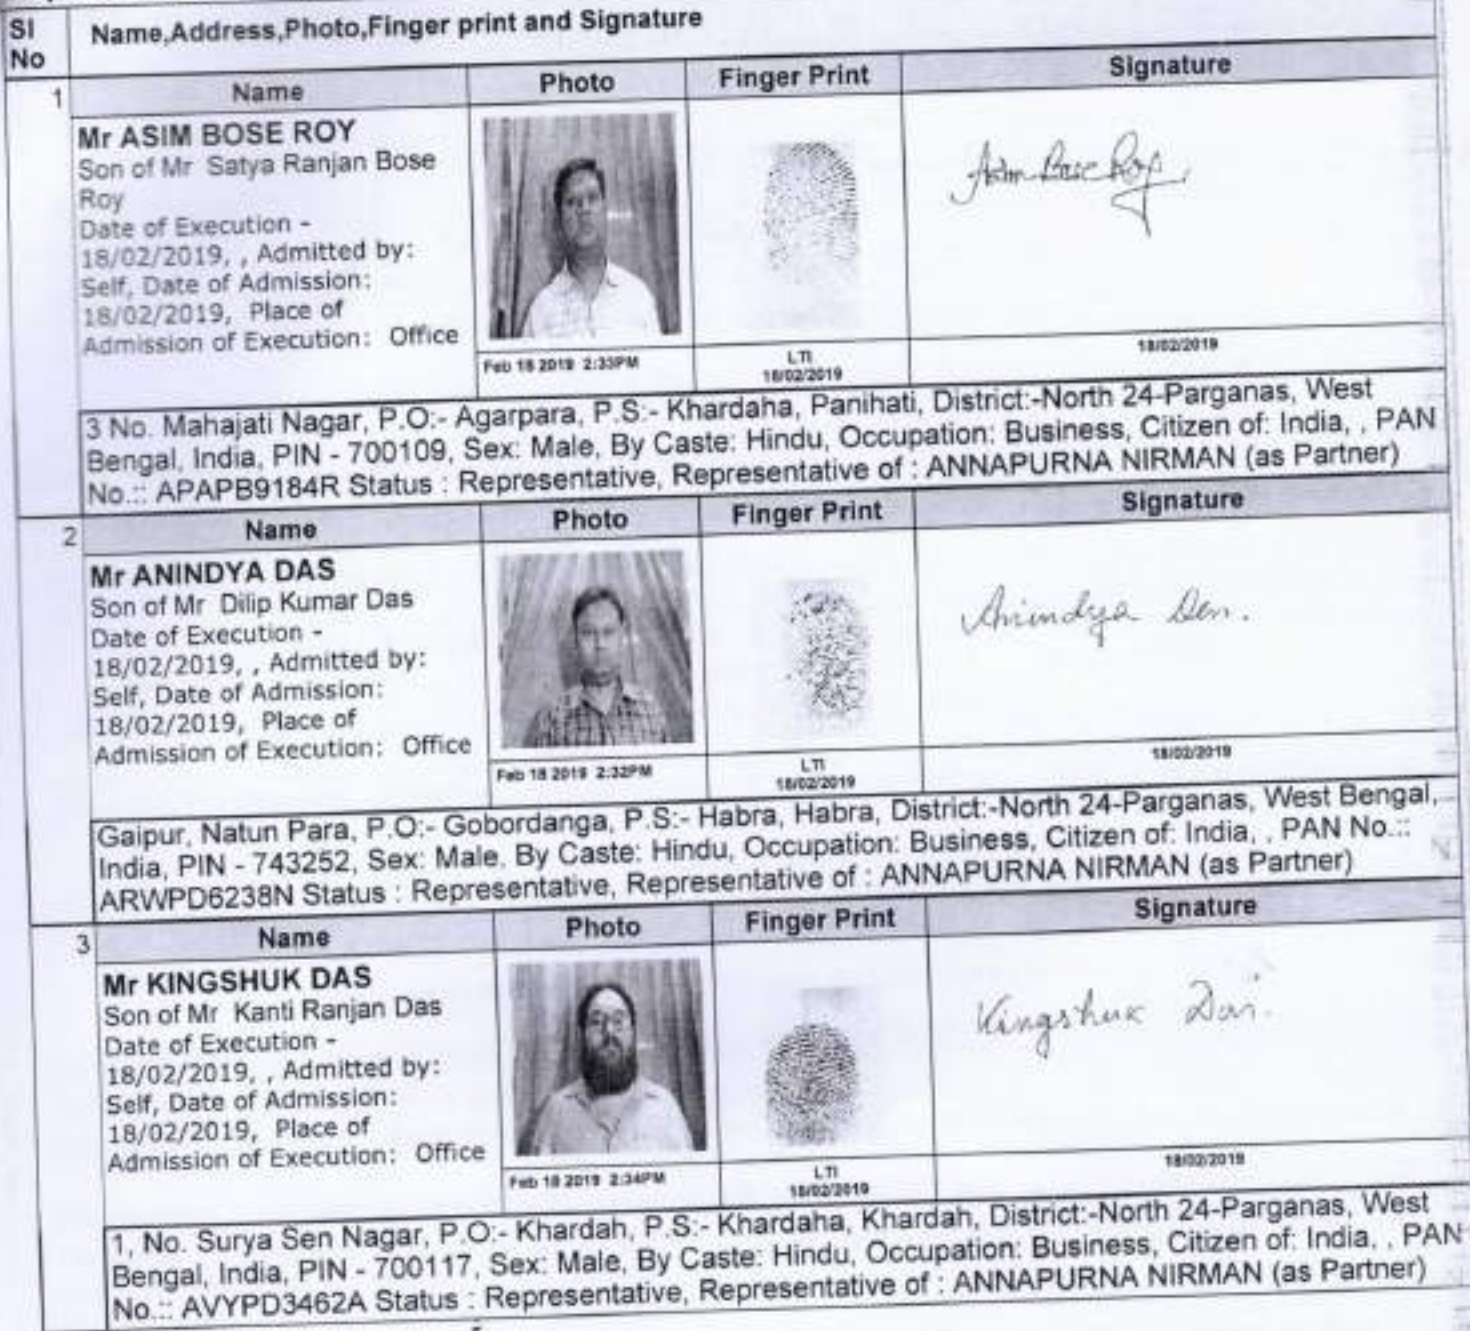 Sl No
Name,Address,Photo,Finger print and Signature
1
Name
Photo
Finger Print
Signature
Mr ASIM BOSE ROY
Son of Mr Satya Ranjan Bose
Roy
Date of Execution -
18/02/2019, , Admitted by:
Self, Date of Admission:
18/02/2019, Place of
Admission of Execution: Office
Asim Bose Roy
Feb 18 2019 2:33PM
LTI
18/02/2019
18/02/2019
3 No. Mahajati Nagar, P.O:- Agarpara, P.S:- Khardaha, Panihati, District:-North 24-Parganas, West
Bengal, India, PIN - 700109, Sex: Male, By Caste: Hindu, Occupation: Business, Citizen of: India, , PAN
No.:: APAPB9184R Status : Representative, Representative of : ANNAPURNA NIRMAN (as Partner)
2
Name
Photo
Finger Print
Signature
Mr ANINDYA DAS
Son of Mr Dilip Kumar Das
Date of Execution -
18/02/2019, , Admitted by:
Self, Date of Admission:
18/02/2019, Place of
Admission of Execution: Office
Anindya Das.
Feb 18 2019 2:32PM
LTI
18/02/2019
18/02/2019
Gaipur, Natun Para, P.O:- Gobordanga, P.S:- Habra, Habra, District:-North 24-Parganas, West Bengal,
India, PIN - 743252, Sex: Male, By Caste: Hindu, Occupation: Business, Citizen of: India, , PAN No.::
ARWPD6238N Status : Representative, Representative of : ANNAPURNA NIRMAN (as Partner)
3
Name
Photo
Finger Print
Signature
Mr KINGSHUK DAS
Son of Mr Kanti Ranjan Das
Date of Execution -
18/02/2019, , Admitted by:
Self, Date of Admission:
18/02/2019, Place of
Admission of Execution: Office
Kingshuk Das.
Feb 18 2019 2:34PM
LTI
18/02/2019
18/02/2019
1, No. Surya Sen Nagar, P.O:- Khardah, P.S:- Khardaha, Khardah, District:-North 24-Parganas, West
Bengal, India, PIN - 700117, Sex: Male, By Caste: Hindu, Occupation: Business, Citizen of: India, , PAN
No.:: AVYPD3462A Status : Representative, Representative of : ANNAPURNA NIRMAN (as Partner)